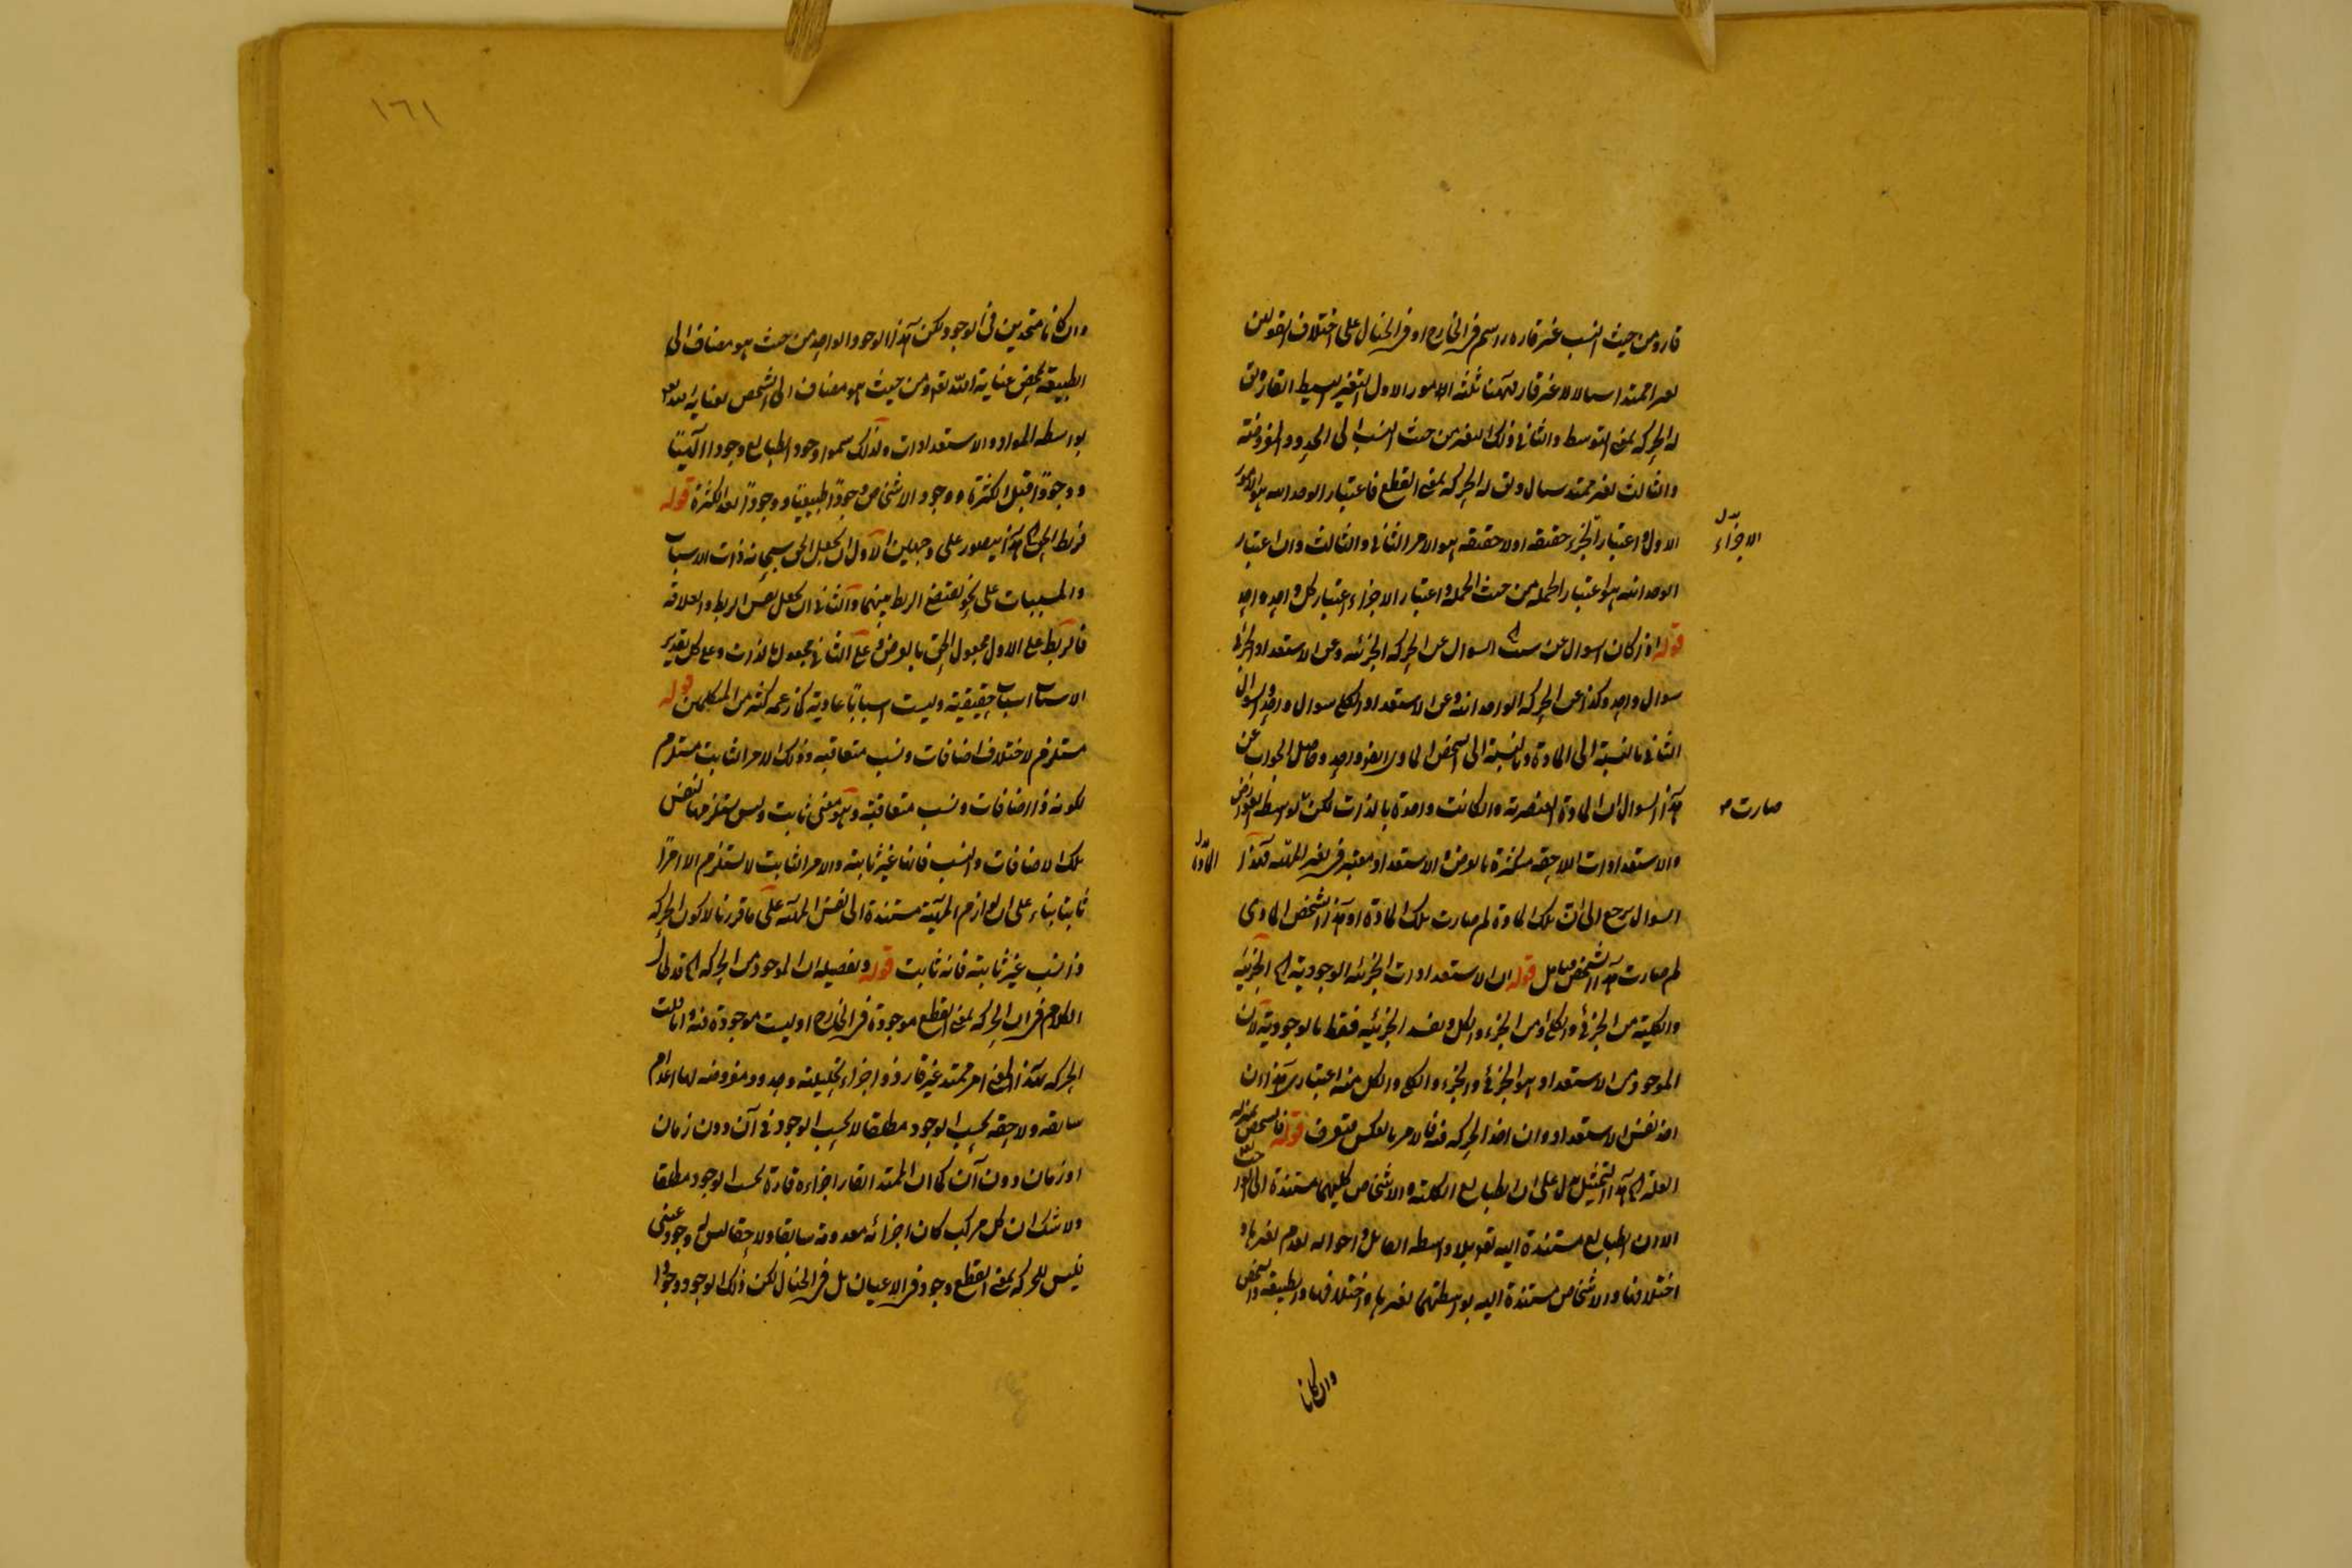 قار ومن حيث النسب غير قاره راسم فى الخارج او فى الخيال على اختلاف القولين
امرا ممتدا سيالا غير قار فههنا ثلثة امور الاول المتغير البسيط القار يق
له الحركه بمعنى التوسط والثانى ذلك المتغير من حيث النسب الى الحدود المفروضة
والثالث متغير ممتد سيال ويق له الحركه بمعنى القطع فاعتبار الوحدانيه هو الامر
الاول واعتبار الجزء حقيقه او لا حقيقه هو الامر الثانى والثالث وان اعتبار
الوحدانيه هو اعتبار الجمله من حيث الجمله واعتبار الاجزاء اعتبار كل واحد واحد
قوله اذ كان السوال عن السوال عن الحركه الجزئيه وعن الاستعداد الجزئى
سوال واحد وكذا عن الحركه الوحدانيه وعن الاستعداد الكلى سوال واحد والسوال
الثانى بالنسبة الى المادة وبالنسبة الى الشخص المادى ايضا واحد وحاصل الجواب عن
هذا السوال ان المادة العنصرية وان كانت واحدة بالذات لكن بواسطه العوارض
والاستعدادات اللاحقه متكثرة بالعرض والاستعداد معتبر فى تغير المهيه فهذا
السوال يرجع الى ان تلك المادة لم صارت تلك المادة او هذا الشخص المادى
لم صارت هذا الشخص تامل قوله ان الاستعدادات الجزئيه الوجودية اه الجزئية
والكلية من الجزئى والكلى او من الجزء والكل وتقييد الجزئيه فقط بالوجودية لان
الموجود من الاستعداد هو الجزئى والجزء والكلى والكل منه اعتبارى هذا ان
اخذ نفس الاستعداد وان اخذ الحركه فيه فالامر بالعكس فتعرف قوله فالشخص بمنزله
العله اه هذا التمثيل يدل على ان الطبايع الكليه والاشخاص كليهما مستندة الى
الا ان الطبايع مستندة اليه تعالى بلا واسطه القابل واحواله لعدم تغيرها و
اختلافها والاشخاص مستندة اليه بواسطتهما لتغيرها واختلافها والطبيعة والشخص
وان كانا
الاجزاء بدل
صارت
المادة بدل
١٦١
وان كانا متحدين فى الوجود لكن هذا الوجود الواحد من حيث هو مضاف الى
الطبيعة بمحض عناية الله تعالى ومن حيث هو مضاف الى الشخص بعناية الله تعالى
بواسطه المواد والاستعدادات ولذلك سموا وجود الطبايع وجودا الهيا
ووجودا قبل الكثرة ووجود الاشخاص وجودا طبيعيا ووجودا بعد الكثرة قوله
فربط الحق اه هذا يتصور على وجهين الاول ان يجعل الحق سبحانه ذات الاسباب
والمسببات على نحو يقتضى الربط بينهما والثانى ان يجعل نفس الربط والعلاقه
فالربط على الاول مجعول الحق بالعرض وعلى الثانى مجعول بالذات وعلى كل تقدير
الاسباب اسباب حقيقية وليست اسبابا عادية كما زعمه كثير من المتكلمين قوله
مستلزم لاختلاف اضافات ونسب متعاقبه وذلك الامر الثابت مستلزم
لكونه ذا اضافات ونسب متعاقبة وهو معنى ثابت وليس مستلزما لنفس
تلك الاضافات والنسب فانها غير ثابته والامر الثابت لا يستلزم الا امرا
ثابتا بناء على ان لوازم المهية مستندة الى نفس المهيه على ما قررنا لا كون الحركه
ذا نسب غير ثابته فانه ثابت قوله وتفصيله ان الموجود من الحركه اه قد طال
الكلام فى ان الحركه بمعنى القطع موجودة فى الخارج او ليست موجودة فيه وان قلت
الحركه بهذا المعنى امر ممتد غير قار ذو اجزاء تحليليه وحدود مفروضه لها اعدام
سابقه ولاحقه بحسب الوجود مطلقا لا بحسب الوجود فى آن دون زمان
او زمان دون آن كما ان الممتد القار اجزاءه قارة بحسب الوجود مطلقا
ولا شك ان كل مركب كان اجزائه معدومة سابقا ولاحقا ليس له وجود عينى
فليس للحركه بمعنى القطع وجود فى الاعيان بل فى الخيال لكن ذلك الوجود وجودا